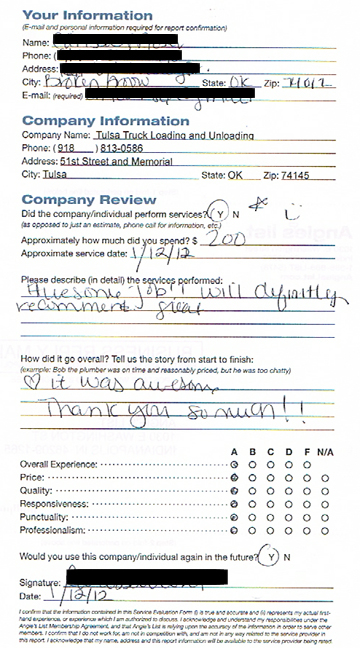 Your Information
(E-mail and personal information required for report confirmation)
Name:
Phone: (
Address:
City: Broken Arrow State: OK Zip: 74012
E-mail: (required)
Company Information
Company Name: Tulsa Truck Loading and Unloading
Phone: (918 ) 813-0586
Address: 51st Street and Memorial
City: Tulsa State: OK Zip: 74145
Company Review
Did the company/individual perform services? Y N
(as opposed to just an estimate, phone call for information, etc.)
Approximately how much did you spend? $ 200
Approximate service date: 1/12/12
Please describe (in detail) the services performed:
Awesome Job!! will definitley
recomment. great
How did it go overall? Tell us the story from start to finish:
(example: Bob the plumber was on time and reasonably priced, but he was too chatty)
♡ it was awesome
Thank you so much!!
A B C D F N/A
Overall Experience:
Price:
Quality:
Responsiveness:
Punctuality:
Professionalism:
Would you use this company/individual again in the future? Y N
Signature:
Date: 1/12/12
I confirm that the information contained in this Service Evaluation Form (i) is true and accurate and (ii) represents my actual first-
hand experience, or experience which I am authorized to discuss. I acknowledge and understand my responsibilities under the
Angie's List Membership Agreement, and that Angie's List is relying upon the accuracy of the information in order to serve other
members. I confirm that I do not work for, am not in competition with, and am not in any way related to the service provider in
this report. I acknowledge that my name, address and report information will be available to the service provider being rated